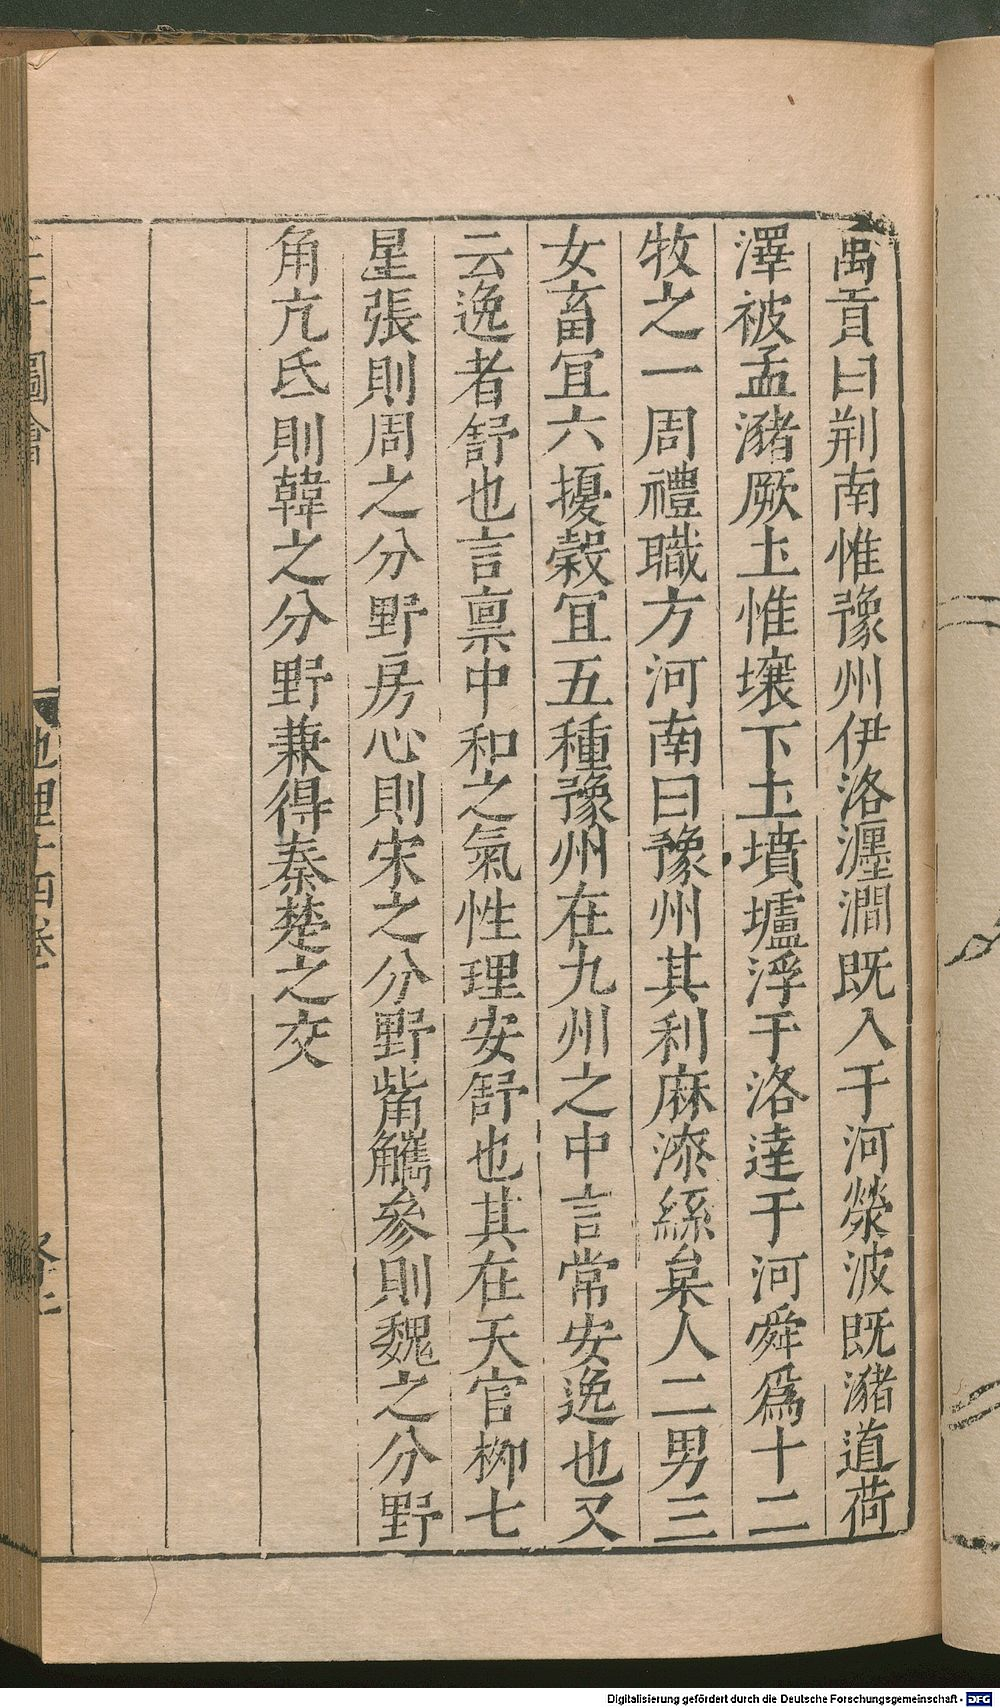 禹貢曰荆南惟豫州伊洛瀍澗既入于河滎波既瀦道荷
澤被孟瀦厥土惟壤下土墳壚浮于洛達于河舜爲十二
牧之一周禮職方河南曰豫州其利麻漆絲枲人二男三
女畜宜六擾穀宜五種豫州在九州之中言常安逸也又
云逸者舒也言禀中和之氣性理安舒也其在天官柳七
星張則周之分野房心則宋之分野觜觿參則魏之分野
角亢氐則韓之分野兼得秦楚之交
圖會
地理十四卷
Digitalisierung gefördert durch die Deutsche Forschungsgemeinschaft - DFG